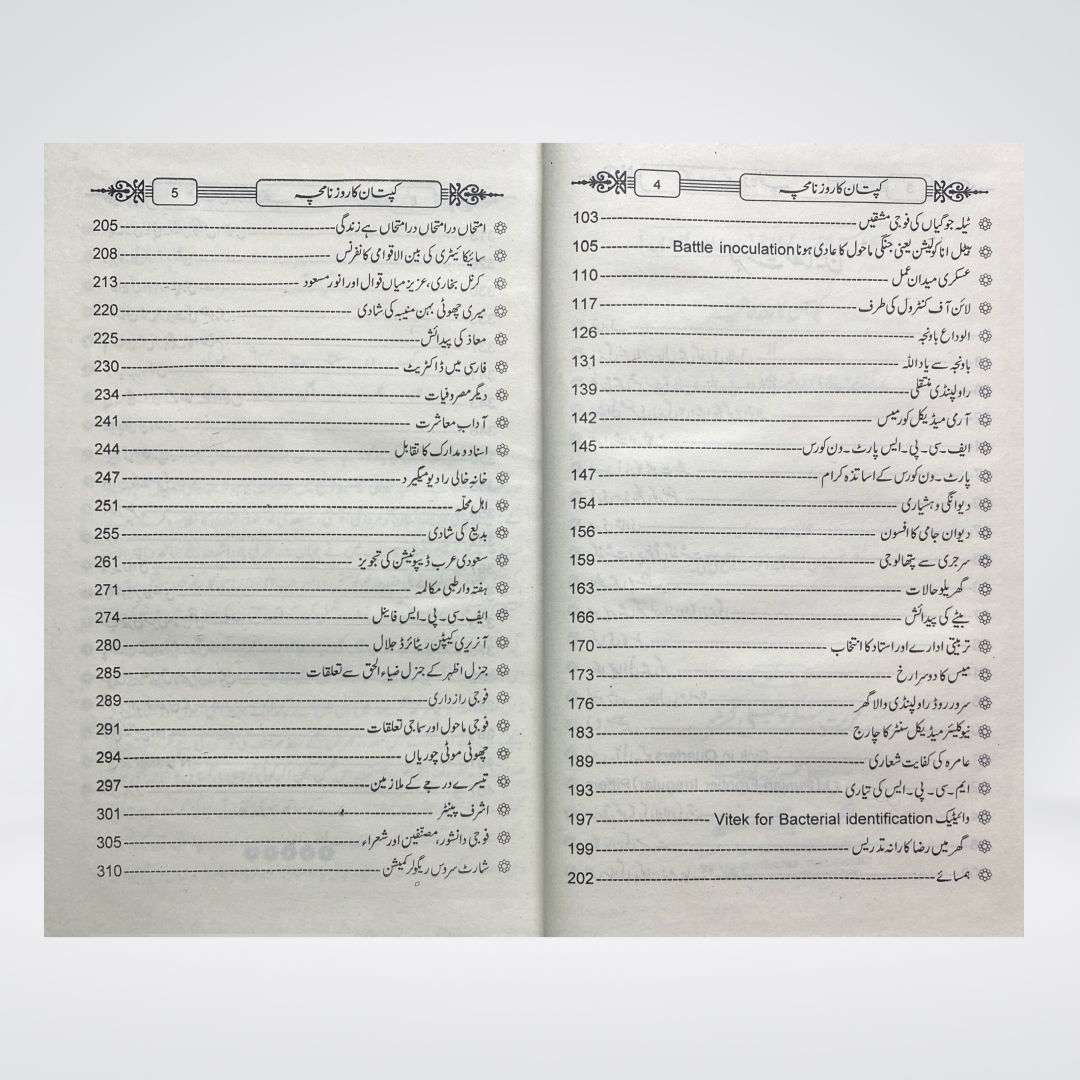 کپتان کا روزنامچہ 4
ٹیلہ جوگیاں کی فوجی مشقیں 103
بیٹل اناکولیشن یعنی جنگی ماحول کا عادی ہونا Battle inoculation 105
عسکری میدانِ عمل 110
لائن آف کنٹرول کی طرف 117
الوداع باونجہ 126
باونجہ سے یاد اللہ 131
راولپنڈی منتقلی 139
آرمی میڈیکل کور میس 142
ایف۔سی۔پی۔ایس پارٹ۔ون کورس 145
پارٹ۔ون کورس کے اساتذہ کرام 147
دیوانگی و ہشیاری 154
دیوان جامی کا افسون 156
سرجری سے پتھالوجی 159
گھریلو حالات 163
بیٹے کی پیدائش 166
تربیتی ادارے اور استاد کا انتخاب 170
میس کا دوسرا رخ 173
سرور روڈ راولپنڈی والا گھر 176
نیوکلیئر میڈیکل سنٹر کا چارج 183
عامرہ کی کفایت شعاری 189
ایم۔سی۔پی۔ایس کی تیاری 193
وائیٹیک Vitek for Bacterial identification 197
گھر میں رضا کارانہ تدریس 199
ہمسائے 202
کپتان کا روزنامچہ 5
امتحاں در امتحاں در امتحاں ہے زندگی 205
سائیکائیٹری کی بین الاقوامی کانفرنس 208
کرنل بخاری، عزیز میاں قوال اور انور مسعود 213
میری چھوٹی بہن منیبہ کی شادی 220
معاذ کی پیدائش 225
فارسی میں ڈاکٹریٹ 230
دیگر مصروفیات 234
آدابِ معاشرت 241
اسناد و مدارک کا تقابل 244
خانہ خالی را دیو میگیرد 247
اہل محلّہ 251
بدیع کی شادی 255
سعودی عرب ڈیپوٹیشن کی تجویز 261
ہفتہ وار طبی مکالمہ 271
ایف۔سی۔پی۔ایس فائینل 274
آنریری کیپٹن ریٹائرڈ جلال 280
جنرل اظہر کے جنرل ضیاء الحق سے تعلقات 285
فوجی رازداری 289
فوجی ماحول اور سماجی تعلقات 291
چھوٹی موٹی چوریاں 294
تیسرے درجے کے ملازمین 297
اشرف پینٹر 301
فوجی دانشور، مصنّفین اور شعراء 305
شارٹ سروس ریگولر کمیشن 310